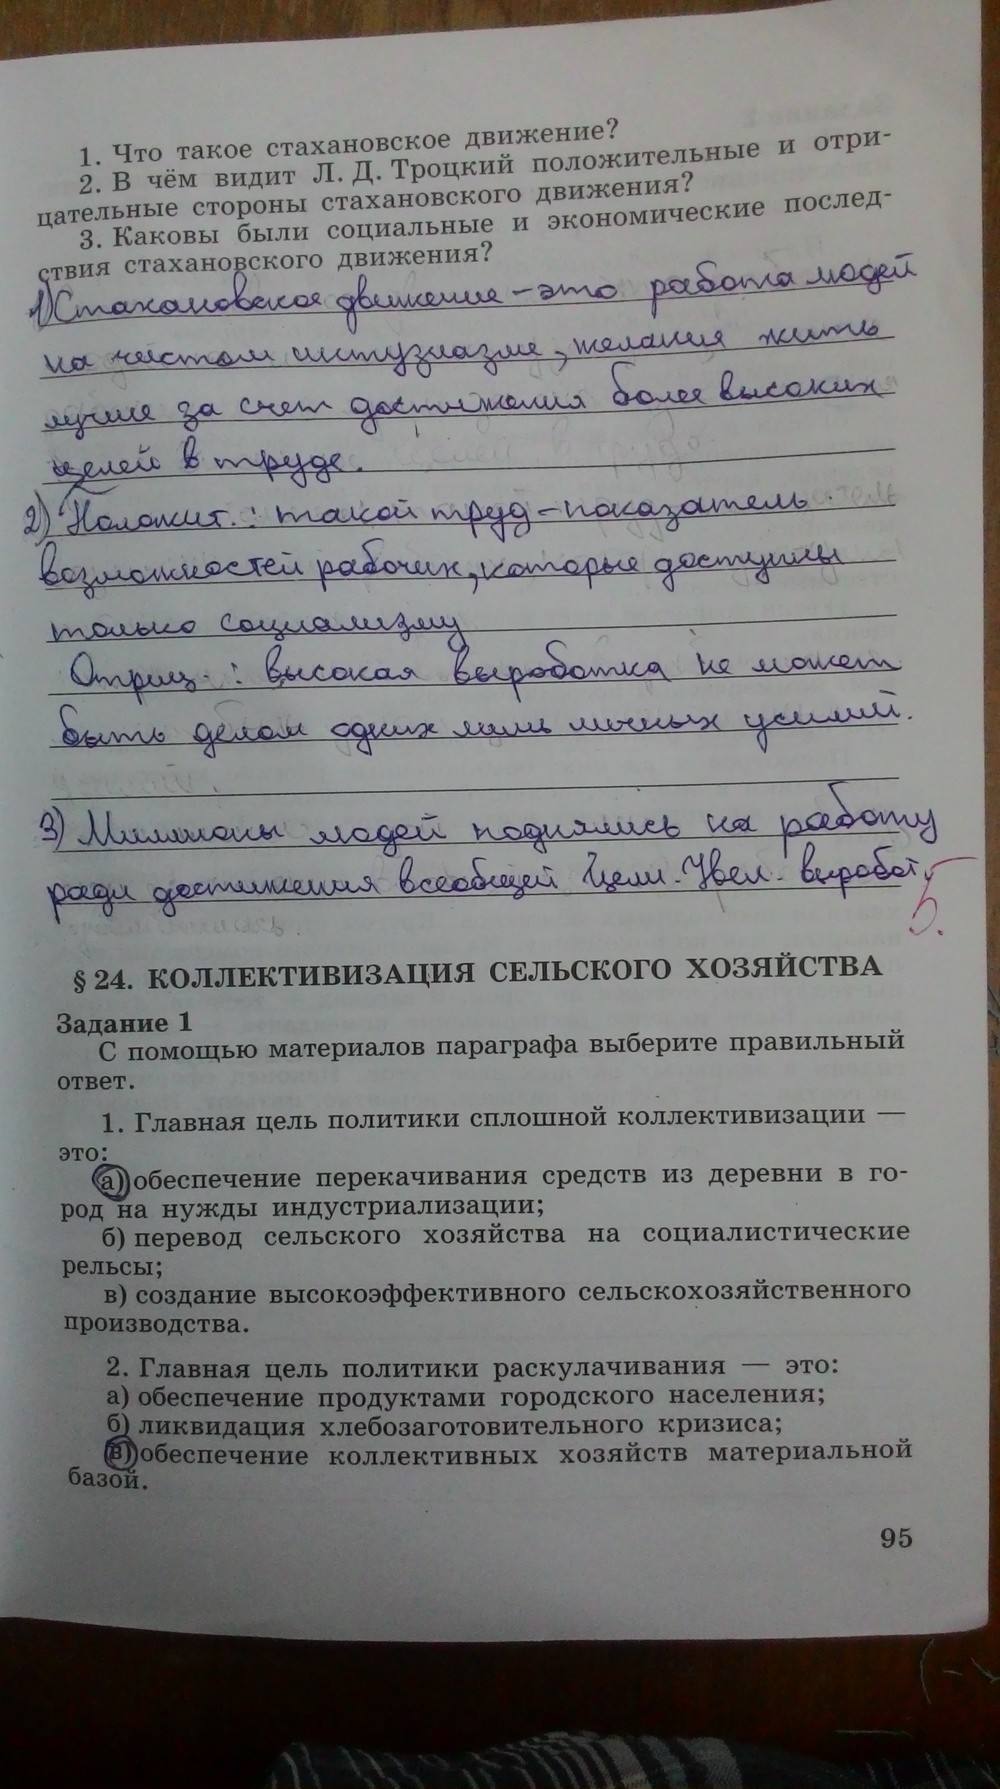 1. Что такое стахановское движение?
2. В чём видит Л. Д. Троцкий положительные и отри-
цательные стороны стахановского движения?
3. Каковы были социальные и экономические послед-
ствия стахановского движения?
1) Стахановское движение – это работа людей
на чистом интузиазме, желания жить
лучше за счет достижения более высоких
целей в труде.
2) Положит.: такой труд – показатель
возможностей рабочих, которые доступны
только социализму
Отриц.: высокая выработка не может
быть делом одних лишь личных усилий.
3) Миллионы людей поднялись на работу
ради достижения всеобщей цели. Увел. выработ.
5.
§ 24. КОЛЛЕКТИВИЗАЦИЯ СЕЛЬСКОГО ХОЗЯЙСТВА
Задание 1
С помощью материалов параграфа выберите правильный
ответ.
1. Главная цель политики сплошной коллективизации —
это:
а) обеспечение перекачивания средств из деревни в го-
род на нужды индустриализации;
б) перевод сельского хозяйства на социалистические
рельсы;
в) создание высокоэффективного сельскохозяйственного
производства.
2. Главная цель политики раскулачивания — это:
а) обеспечение продуктами городского населения;
б) ликвидация хлебозаготовительного кризиса;
в) обеспечение коллективных хозяйств материальной
базой.
95